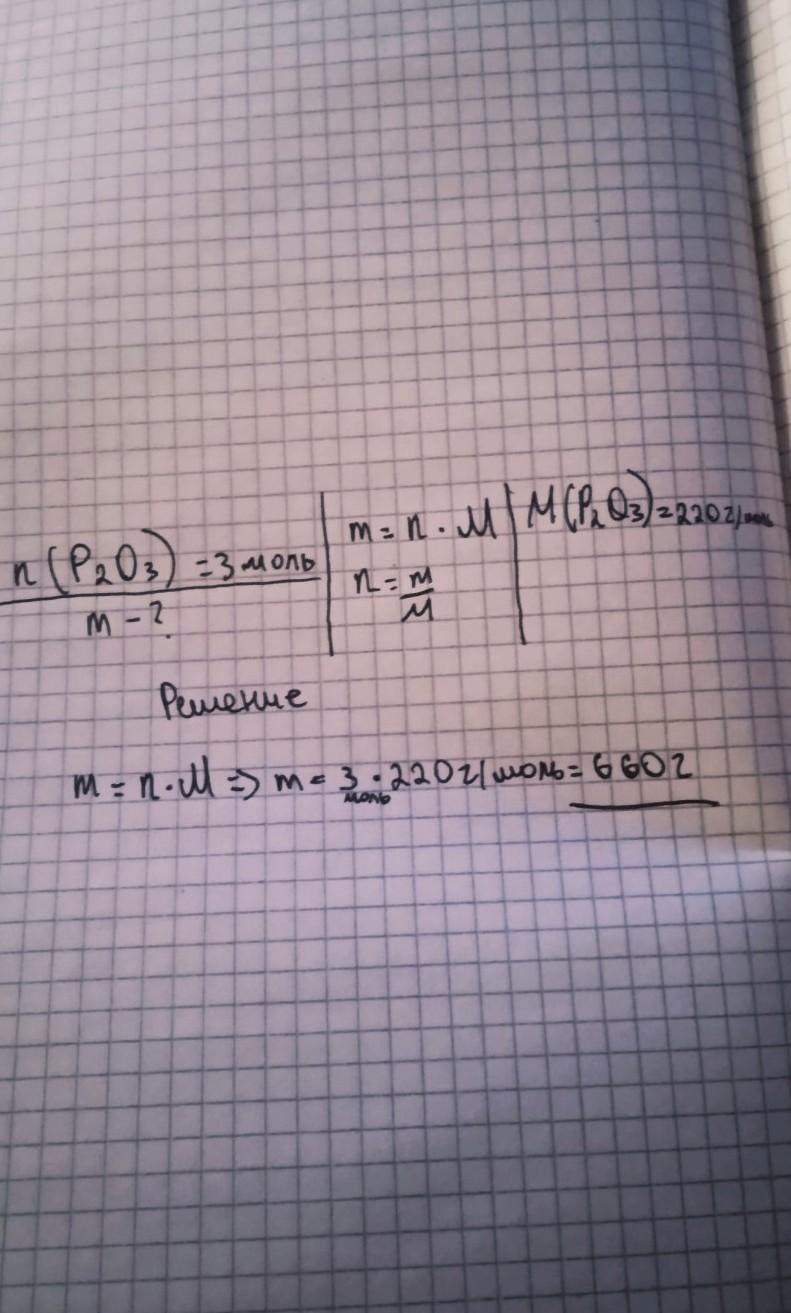 n (P₂O₃) = 3 моль
m - ?
m = n · M
n = m/M
M(P₂O₃) = 220 г/моль
Решение
m = n · M => m = 3 моль · 220 г/моль = 660 г